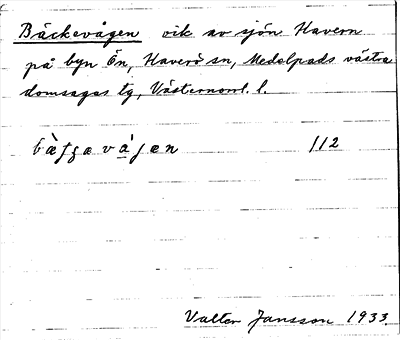 Bäckevågen vik av sjön Havern
på byn Ön, Haverö sn, Medelpads västra
domsagas tg, Västernorrl. l.
112
Valter Jansson 1933.